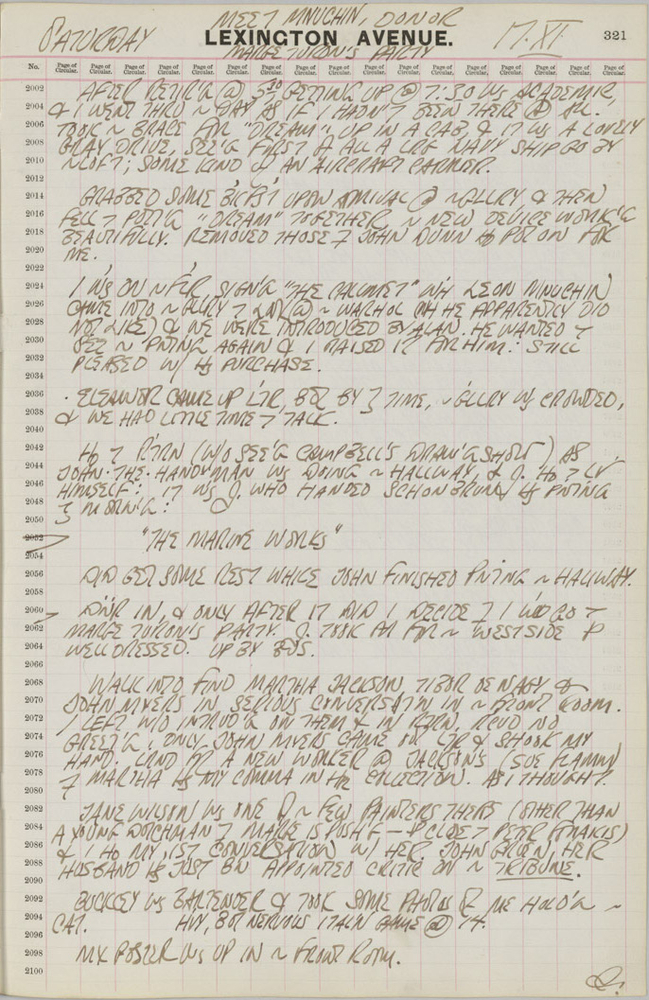 MEET MNUCHIN, DONOR
SATURDAY LEXINGTON AVENUE. 17·XI 321
MARGE TURON'S PARTY
No. Page of Circular. Page of Circular. Page of Circular. Page of Circular. Page of Circular. Page of Circular. Page of Circular. Page of Circular. Page of Circular. Page of Circular. Page of Circular. Page of Circular. Page of Circular. Page of Circular. Page of Circular.
2002 AFTER RETIR'G @ 3:30 GETTING UP @ 7:30 WS ACADEMIC,
2004 & I WENT THRU ~ DAY AS IF I HADN'T BEEN THERE @ ALL.
2006 TOOK ~ BRACE FOR "DREAM" UP IN A CAB, & IT WS A LOVELY
2008 GRAY DRIVE, SEE'G FIRST OF ALL A LRG NAVY SHIP GO BY
2010 ~ LOFT; SOME KIND OF AN AIRCRAFT CARRIER.
2012
2014 GRABBED SOME BKFST UPON ARRIVAL @ ~ GLLRY, & THEN
2016 FELL 7 PUTT'G "DREAM" TOGETHER ~ NEW DEVICE WORK'G
2018 BEAUTIFULLY. REMOVED THOSE 7 JOHN DUNN HD PUT ON FOR
2020 ME.
2022
2024 I WS ON ~ FLR SIGN'G "THE CALUMET" WH LEON MNUCHIN
2026 CAME INTO ~ GLLRY 7 LOOK @ ~ WARHOL (WH HE APPARENTLY DID
2028 NOT LIKE) & WE WERE INTRODUCED BY ALAN. HE WANTED 7
2030 SEE ~ PNTING AGAIN & I RAISED IT FOR HIM: STILL
2032 PLEASED W/ HS PURCHASE.
2034
2036 · ELEANOR CAME UP LTR, BUT BY 7 TIME, ~ GLLRY WS CROWDED,
2038 & WE HAD LITTLE TIME 7 TALK.
2040
2042 HD 7 RTRN (W/O SEE'G CAMPBELL'S DRAW'G SHOW) AS
2044 JOHN-THE-HANDYMAN WS DOING ~ HALLWAY, & J. HD 7 LV
2046 HIMSELF: IT WS J. WHO HANDED SCHONBRUNN HS PNTING
2048 7 MORN'G:
2050
2052 "THE MARINE WORKS"
2054
2056 DID GET SOME REST WHILE JOHN FINISHED PNTING ~ HALLWAY.
2058
2060 DNR IN, & ONLY AFTER IT DID I DECIDE 7 I WD GO 7
2062 MARGE TURON'S PARTY. J. TOOK OFF FOR ~ WESTSIDE
2064 WELL DRESSED. UP BY BUS.
2066
2068 WALK INTO FIND MARTHA JACKSON, TIBOR DE NAGY &
2070 JOHN MYERS IN SERIOUS CONVERSAT'N IN ~ FRONT ROOM.
2072 I LEFT W/O INTRUD'G ON THEM & IN RTRN, RCVD NO
2074 GREET'G; ONLY JOHN MYERS CAME OVR LTR & SHOOK MY
2076 HAND. LRND FR A NEW WORKER @ JACKSON'S
2078 7 MARTHA HS MY COMMA IN HR COLLECTION. AS I THOUGHT.
2080
2082 JANE WILSON WS ONE OF ~ FEW PAINTERS THERE (OTHER THAN
2084 A YOUNG DUTCHMAN 7 MARGE IS PUSH'G — CLOSE 7 PETER
2086 & I HD MY 1ST CONVERSATION W/ HER. JOHN GRUEN, HER
2088 HUSBAND HS JUST BN APPOINTED CRITIC ON ~ TRIBUNE.
2090
2092 BUCKLEY WS BARTENDER & TOOK SOME PHOTOS OF ME HOLD'G ~
2094 CAT. HVY, BUT NERVOUS CAME @ 14.
2096
2098 MY POSTER WS UP IN ~ FRONT ROOM.
2100